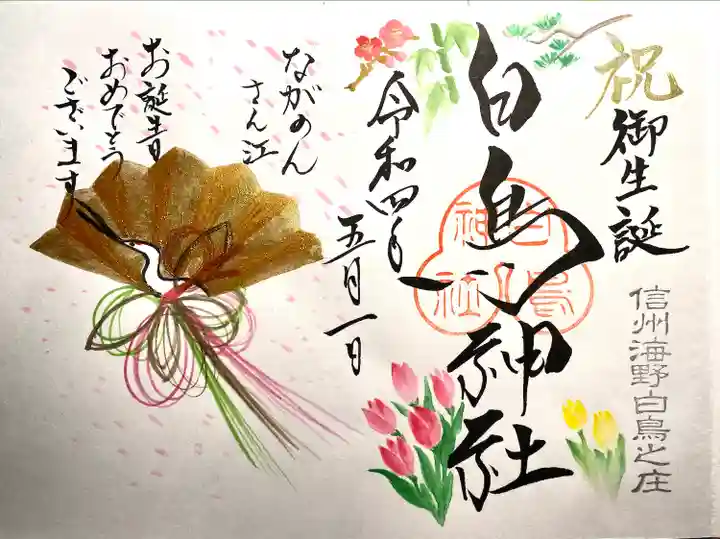 祝
御生誕
信州海野白鳥之庄
白鳥神社
白鳥
神社
令和四年
五月一日
ながのん
さん江
お誕生日
おめでとう
ございます